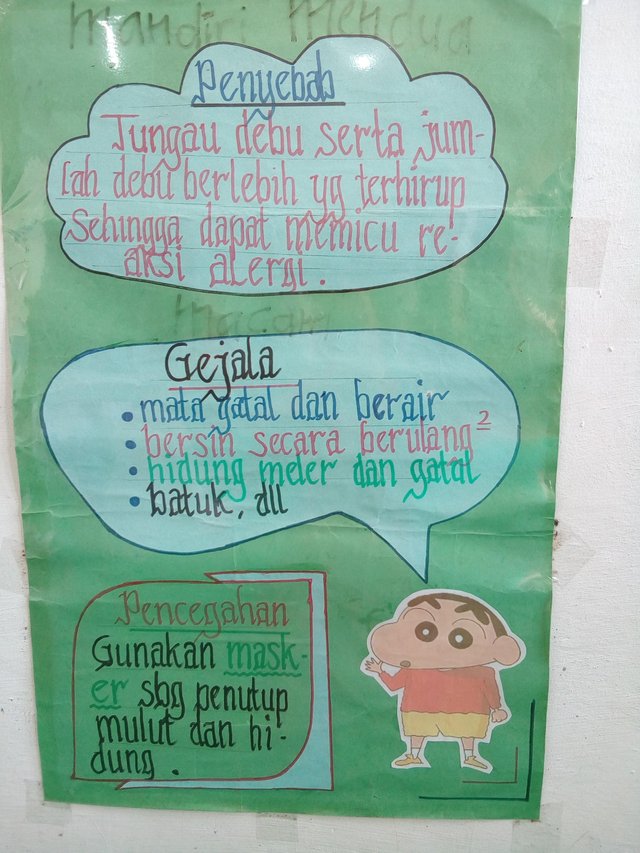 mandiri mendua
Penyebab
Tungau debu serta jum-
lah debu berlebih yg terhirup
Sehingga dapat memicu re-
aksi alergi.
macam
Gejala
• mata gatal dan berair
• bersin secara berulang²
• hidung meler dan gatal
• batuk, dll
Pencegahan
Gunakan mask-
er sbg penutup
mulut dan hi-
dung.